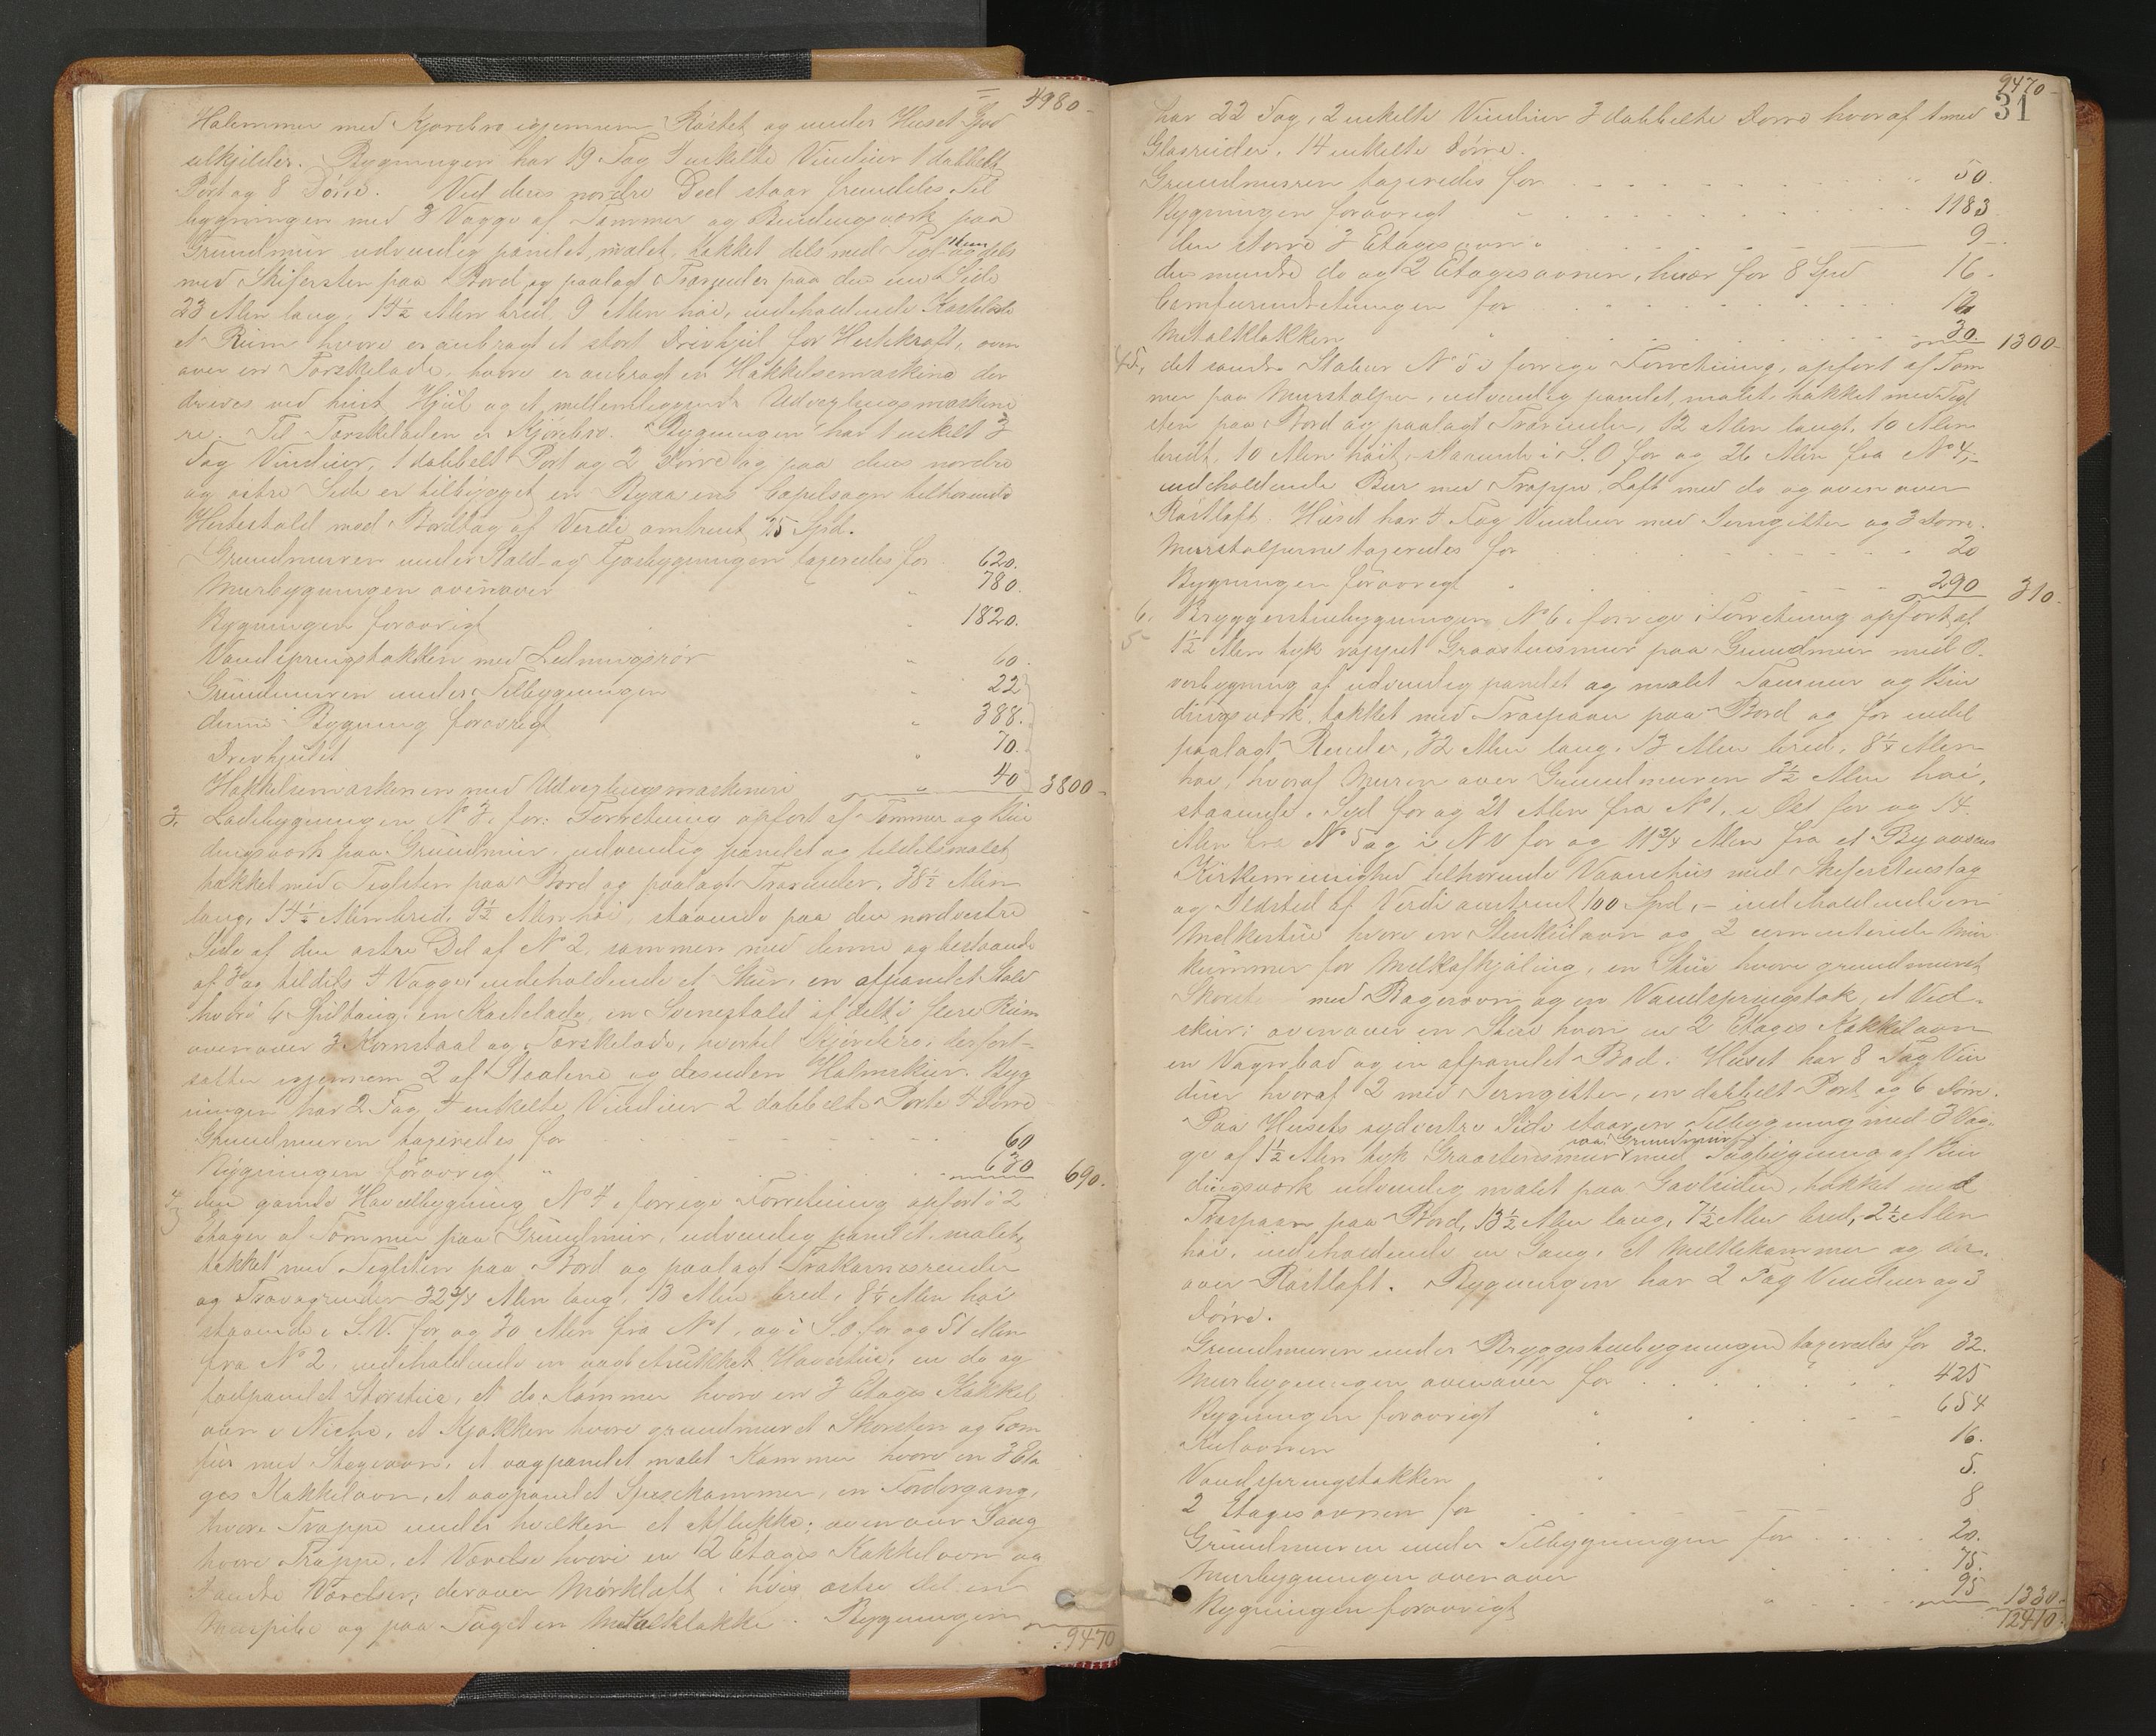 4980-
Halemmer med Kjørebro igjennem Røstet og under Huset Gjød
selkjelder. Bygningen har 19 Fag 4 enkelte Vinduer 1 dobbelt
Port og 8 Dørre. Ved deres nordre Deel staar fremdeles Til
bygningen med 3 Vægge af Tømmer og Bindingsværk paa
Grundmur udvendig panelet, malet, tækket dels med Tegl-sten og dels
med Skifersten paa Bord og paalagt Trærender paa den ene Side
23 Alen lang, 14½ Alen bred, 9 Alen høi, indeholdende
et Rum hvori er anbragt et stort Drivhjul for Hestekraft, oven
over en Tærskelade, hvori er anbragt en Hakkelsemaskine der
drives ved hint Hjul og et mellemliggende Udvexlingsmaskine
ri. Til Tærskeladen er Kjørebro. Bygningen har 1 enkelt 3
Fag Vinduer, 1 dobbelt Port og 2 Dørre og paa dens nordre
og østre Side er tilbygget en Byaasens Capelsogn tilhørende
Hestestald med Bordtag af Verdi omtrent 25 Spd.
Grundmuren under Stald- og Fjøsbygningen taxeredes for 620.
Murbygningen ovenover " 780.
Bygningen forøvrigt " 1820.
Vandspringstokken med Ledningsrør " 60.
Grundmuren under Tilbygningen " 22
denne Bygning forøvrigt " 388.
Drivhjulet " 70.
Hakkelsemaskinen med Udvexlingsmaskineri " 40 3800-
3. Ladebygningen N° 3 i for: Forretning opført af Tømmer og Bin
dingsværk paa Grundmur, udvendig panelet og tildels malet
tækket med Teglsten paa Bord og paalagt Trærender, 38½ Alen
lang, 14½ Alen bred, 9½ Alen høi, staaende paa den nordvestre
Side af den østre Del af N° 2, sammen med denne og bestaaende
af 3 og tildels 4 Vægge, indeholdende et Skur, en afpanelet Stald
hvori 6 Spiltaug, en Kastelade, en Svinestald afdelt i flere Rum
ovenover 3 Kornstaal og Tærskelade, hvortil Kjørebro, derfort-
sætter igjennem 2 af Staalene og desuden Halmskur. Byg
ningen har 2 Fag 4 enkelte Vinduer 2 dobbelte Porte 4 Dørre
Grundmuren taxeredes for 60
Bygningen forøvrigt " 630 690.
4. den gamle Hovedbygning N° 4 i forrige Forretning opført i 2
Etager af Tømmer paa Grundmur, udvendig panelet, malet,
tækket med Teglsten paa Bord og paalagt Trækarnisrender
og Trævagrender 32¾ Alen lang, 13 Alen bred, 8¼ Alen høi
staaende i S.V. for og 30 Alen fra N° 1, og i S.O. for og 51 Alen
fra N° 2, indeholdende en Havestue, en do og
Storstue, et do Kammer hvori en 3 Etages Kakkel
ovn i Niche, et Kjøkken hvori grundmuret Skorsten og Com
fur med Stegeovn, et vægpanelet malet Kammer hvori en 3 Eta
ges Kakkelovn, et vægpanelet Spisekammer, en Fordørgang,
hvori Trappe under hvilken et Aflukke; ovenover Gang
hvori Trappe, et Værelse hvori en 2 Etages Kakkelovn og
4 andre Værelser; derover Mørkloft i hvis østre Del en
og paa Taget en Metalklokke. Bygningen
9470

9470-
31
har 22 Fag, 2 enkelte Vinduer 3 dobbelte Dørre hvoraf 1 med
Glasruder, 14 enkelte Dørre.
Grundmuren taxeredes for 50.
Bygningen forøvrigt " 1183
den større 3 Etagesovn " 9-
den mindre do og 2 Etagesovnen, hver for 8 Spd 16-
Comfurindretningen for 12
Metalklokken " 30. 1300-
45, det søndre Stabur N° 5 i forrige Forretning, opført af Tøm
mer paa Murstolper, udvendig panelet, malet, tækket med Tegl
sten paa Bord og paalagt Trærender, 12 Alen langt, 10 Alen
bredt, 10 Alen høit, staaende i S.O. for og 26 Alen fra N° 4,-
indeholdende Bur med Trappe, Loft med do og ovenover
Røstloft. Huset har 4 Fag Vinduer med Jerngitter og 3 Dørre.
Murstolperne taxeredes for 20
Bygningen forøvrigt " 290 310.
6. Bryggerstuebygningen N° 6 i forrige Forretning opført af
5
1½ Alen tyk rappet Graastensmur paa Grundmur med O-
verbygning af udvendig panelet og malet Tømmer og Bin
dingsværk, tækket med Træspaan paa Bord og for endel
paalagt Render, 32 Alen lang, 13 Alen bred, 8¼ Alen
høi, hvoraf Muren over Grundmuren 3½ Alen høi,
staaende i Syd for og 21 Alen fra N° 1, i Øst for og 14
Alen fra N° 5 og i NV for og 11¾ Alen fra et Byaasens
Kirkemenighed tilhørende Vaanehus med Skiferstenstag
og Ildsted af Verdi omtrent 100 Spd,- indeholdende en
Melkestue hvori en Stenkulovn og 2 cementerede Mur
kummer for Melkafkjøling, en Stue hvori grundmuret
Skorsten med Bagerovn og en Vandspringstok, et Ved-
skur; ovenover en Stue hvori en 2 Etages Kakkelovn
en Vognbod og en afpanelet Bod. Huset har 8 Fag Vin
duer hvoraf 2 med Jerngitter, en dobbelt Port og 6 Dørre.
Paa Husets sydvestre Side staar en Tilbygning med 3 Væg-
ge af 1½ Alen tyk Graastensmur paa Grundmur med Paabygning af Bin
dingsværk udvendig malet paa Gavlsiden, tækket med
Træspaan paa Bord, 13½ Alen lang, 7½ Alen bred, 2½ Alen
høi, indeholdende en Gang, et Melkekammer og der-
over Røstloft. Bygningen har 2 Fag Vinduer og 3
Dørre.
Grundmuren under Bryggestuebygningen taxeredes for 32.
Murbygningen ovenover for 425
Bygningen forøvrigt " 654
Kulovnen " 16.
Vandspringstokken " 5.
2 Etagesovnen for 8
Grundmuren under Tilbygningen for 20.
Murbygningen ovenover 75.
Bygningen forøvrigt " 95 1330-
12410.